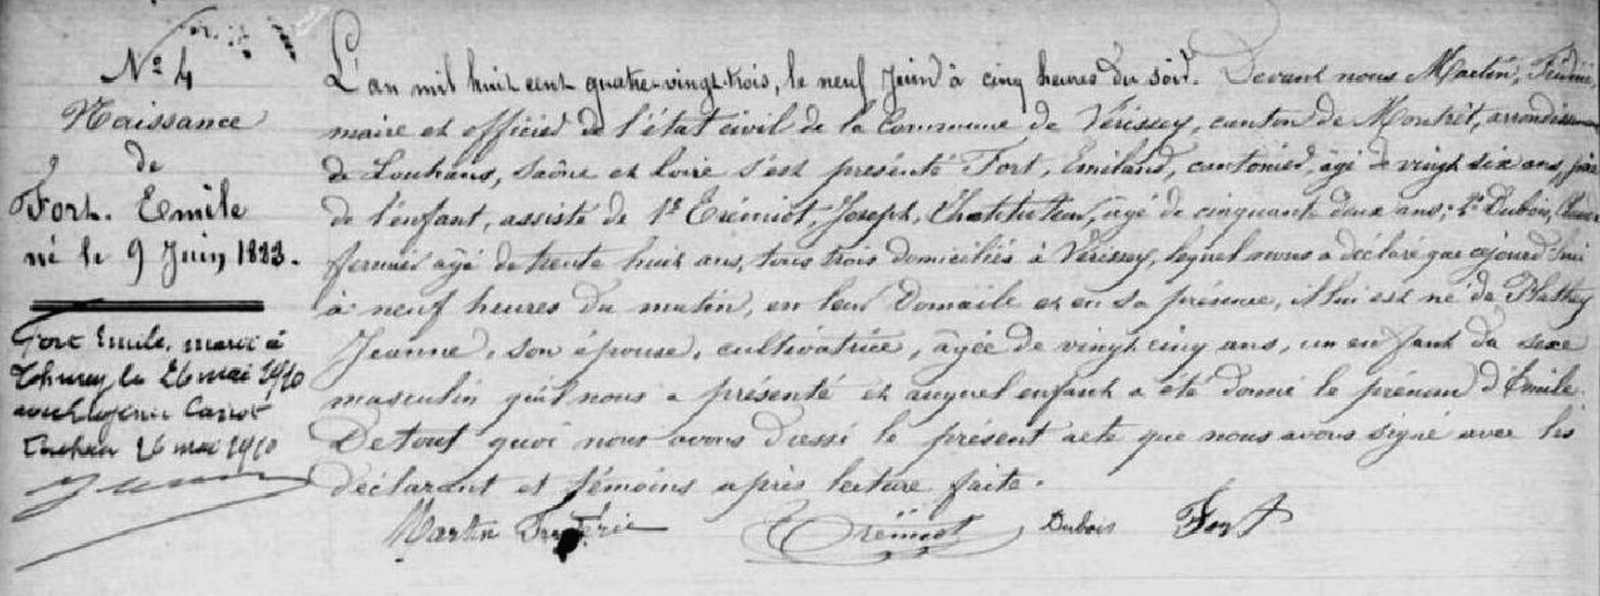 Nº 4
Naissance
de
Fort. Emile
né le 9 Juin 1883.
Fort Emile, marié à
le 26 mai 1910
Carrot
26 mai 1910
L'an mil huit cent quatre-vingt-trois, le neuf Juin à cinq heures du soir. Devant nous Martin, Frédéric,
maire et officier de l'état civil de la Commune de Vérissey, canton de Montrêt, arrondissement
de Louhans, Saône et Loire s'est présenté Fort, Emiland, cantonier, âgé de vingt six ans, père
de l'enfant, assisté de 1º Trémiot, Joseph, âgé de cinquante deux ans; 2º Dubois, Claude
fermier âgé de trente huit ans, tous trois domiciliés à Vérissey, lequel nous a déclaré que cejourd'hui
à neuf heures du matin, en leur Domicile et en sa présence, il lui est né de Plathey
Jeanne, son épouse, cultivatrice, âgée de vingt cinq ans, un enfant du sexe
masculin qu'il nous a présenté et auquel enfant a été donné le prénom d'Emile.
De tout quoi nous avons dressé le présent acte que nous avons signé avec les
déclarant et témoins après lecture faite.
Martin Frédéric Trémiot Dubois Fort